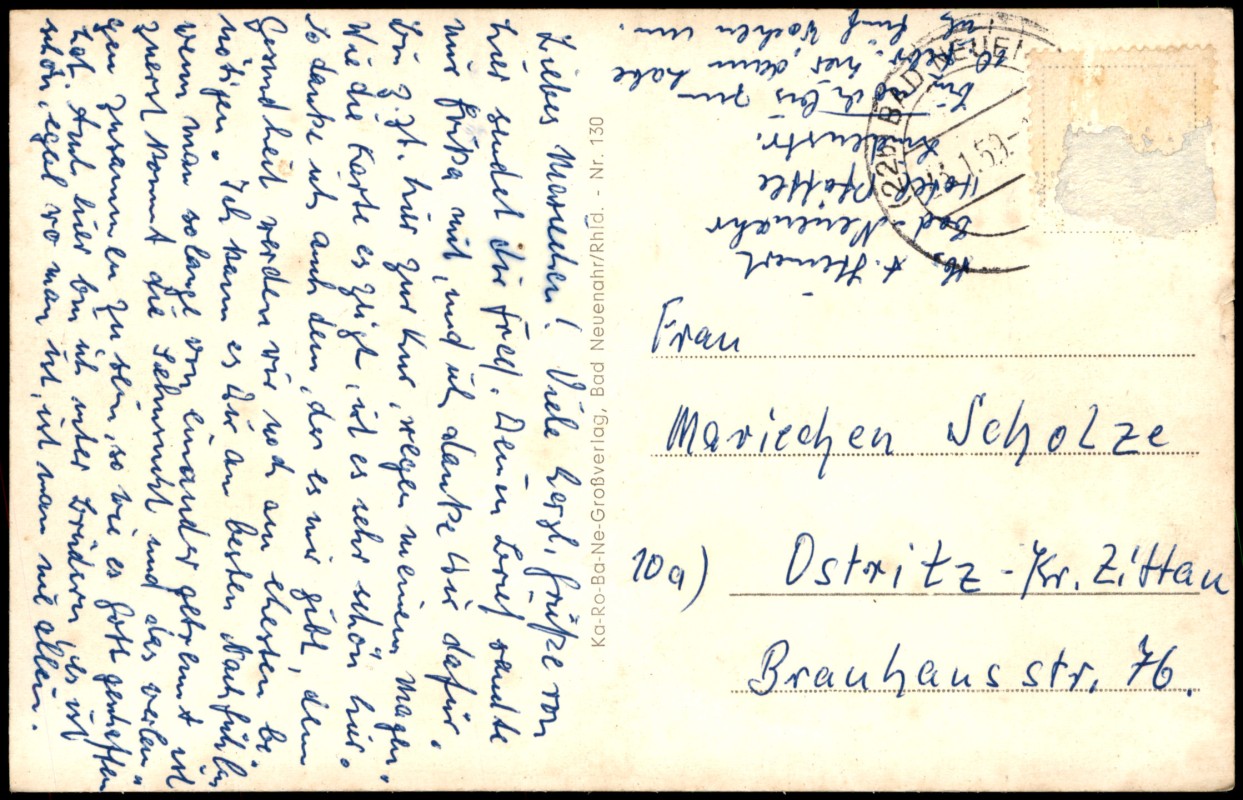 Liebes Mariechen! Viele herzl. Grüße von
hier sendet dir Fred. Deinen Brief sandte
mir mit, und ich danke Dir dafür.
Bin z.Zt. hier zur Kur, wegen meinem Magen.
Wie die Karte es zeigt, ist es sehr schön hier.
So danke ich auch dem, der es mir gibt, denn
Gesundheit werden wir noch am ehesten be-
nötigen. Ich kann es Dir am besten Nachfühlen
wenn man solange von einander getrennt ist
zuerst kommt die Sehnsucht und das verlan-
gen zusammen zu sein, so wie es Gott geschaffen
hat. Auch hier bin ich unter Brüdern, es ist
schön, egal wo man ist, ist man nie allein.
Ka-Ro-Ba-Ne-Großverlag, Bad Neuenahr/Rhld. - Nr. 130
Abs.
Bad Neuenahr
Hotel
Lindenstr.
bin bis zum
hier dann habe
ich fünf Wochen um.
(22b) BAD NEUEN
1.59.-
Frau
Mariechen Scholze
10a) Ostritz - Kr. Zittau
Brauhausstr. 76.